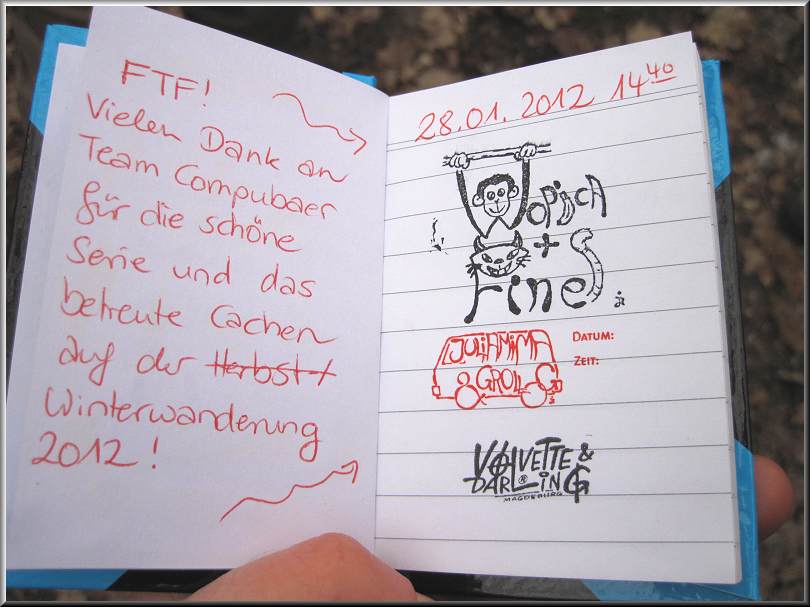 FTF!
Vielen Dank an
Team Compubaer
für die schöne
Serie und das
betreute Cachen
auf der Herbst-/
Winterwanderung
2012!
28.01.2012 14⁴⁰
Wopisch
+
Fines
JULIAMIMA
& GROLL-G
DATUM:
ZEIT:
VOLVETTE &
DARLING
MAGDEBURG